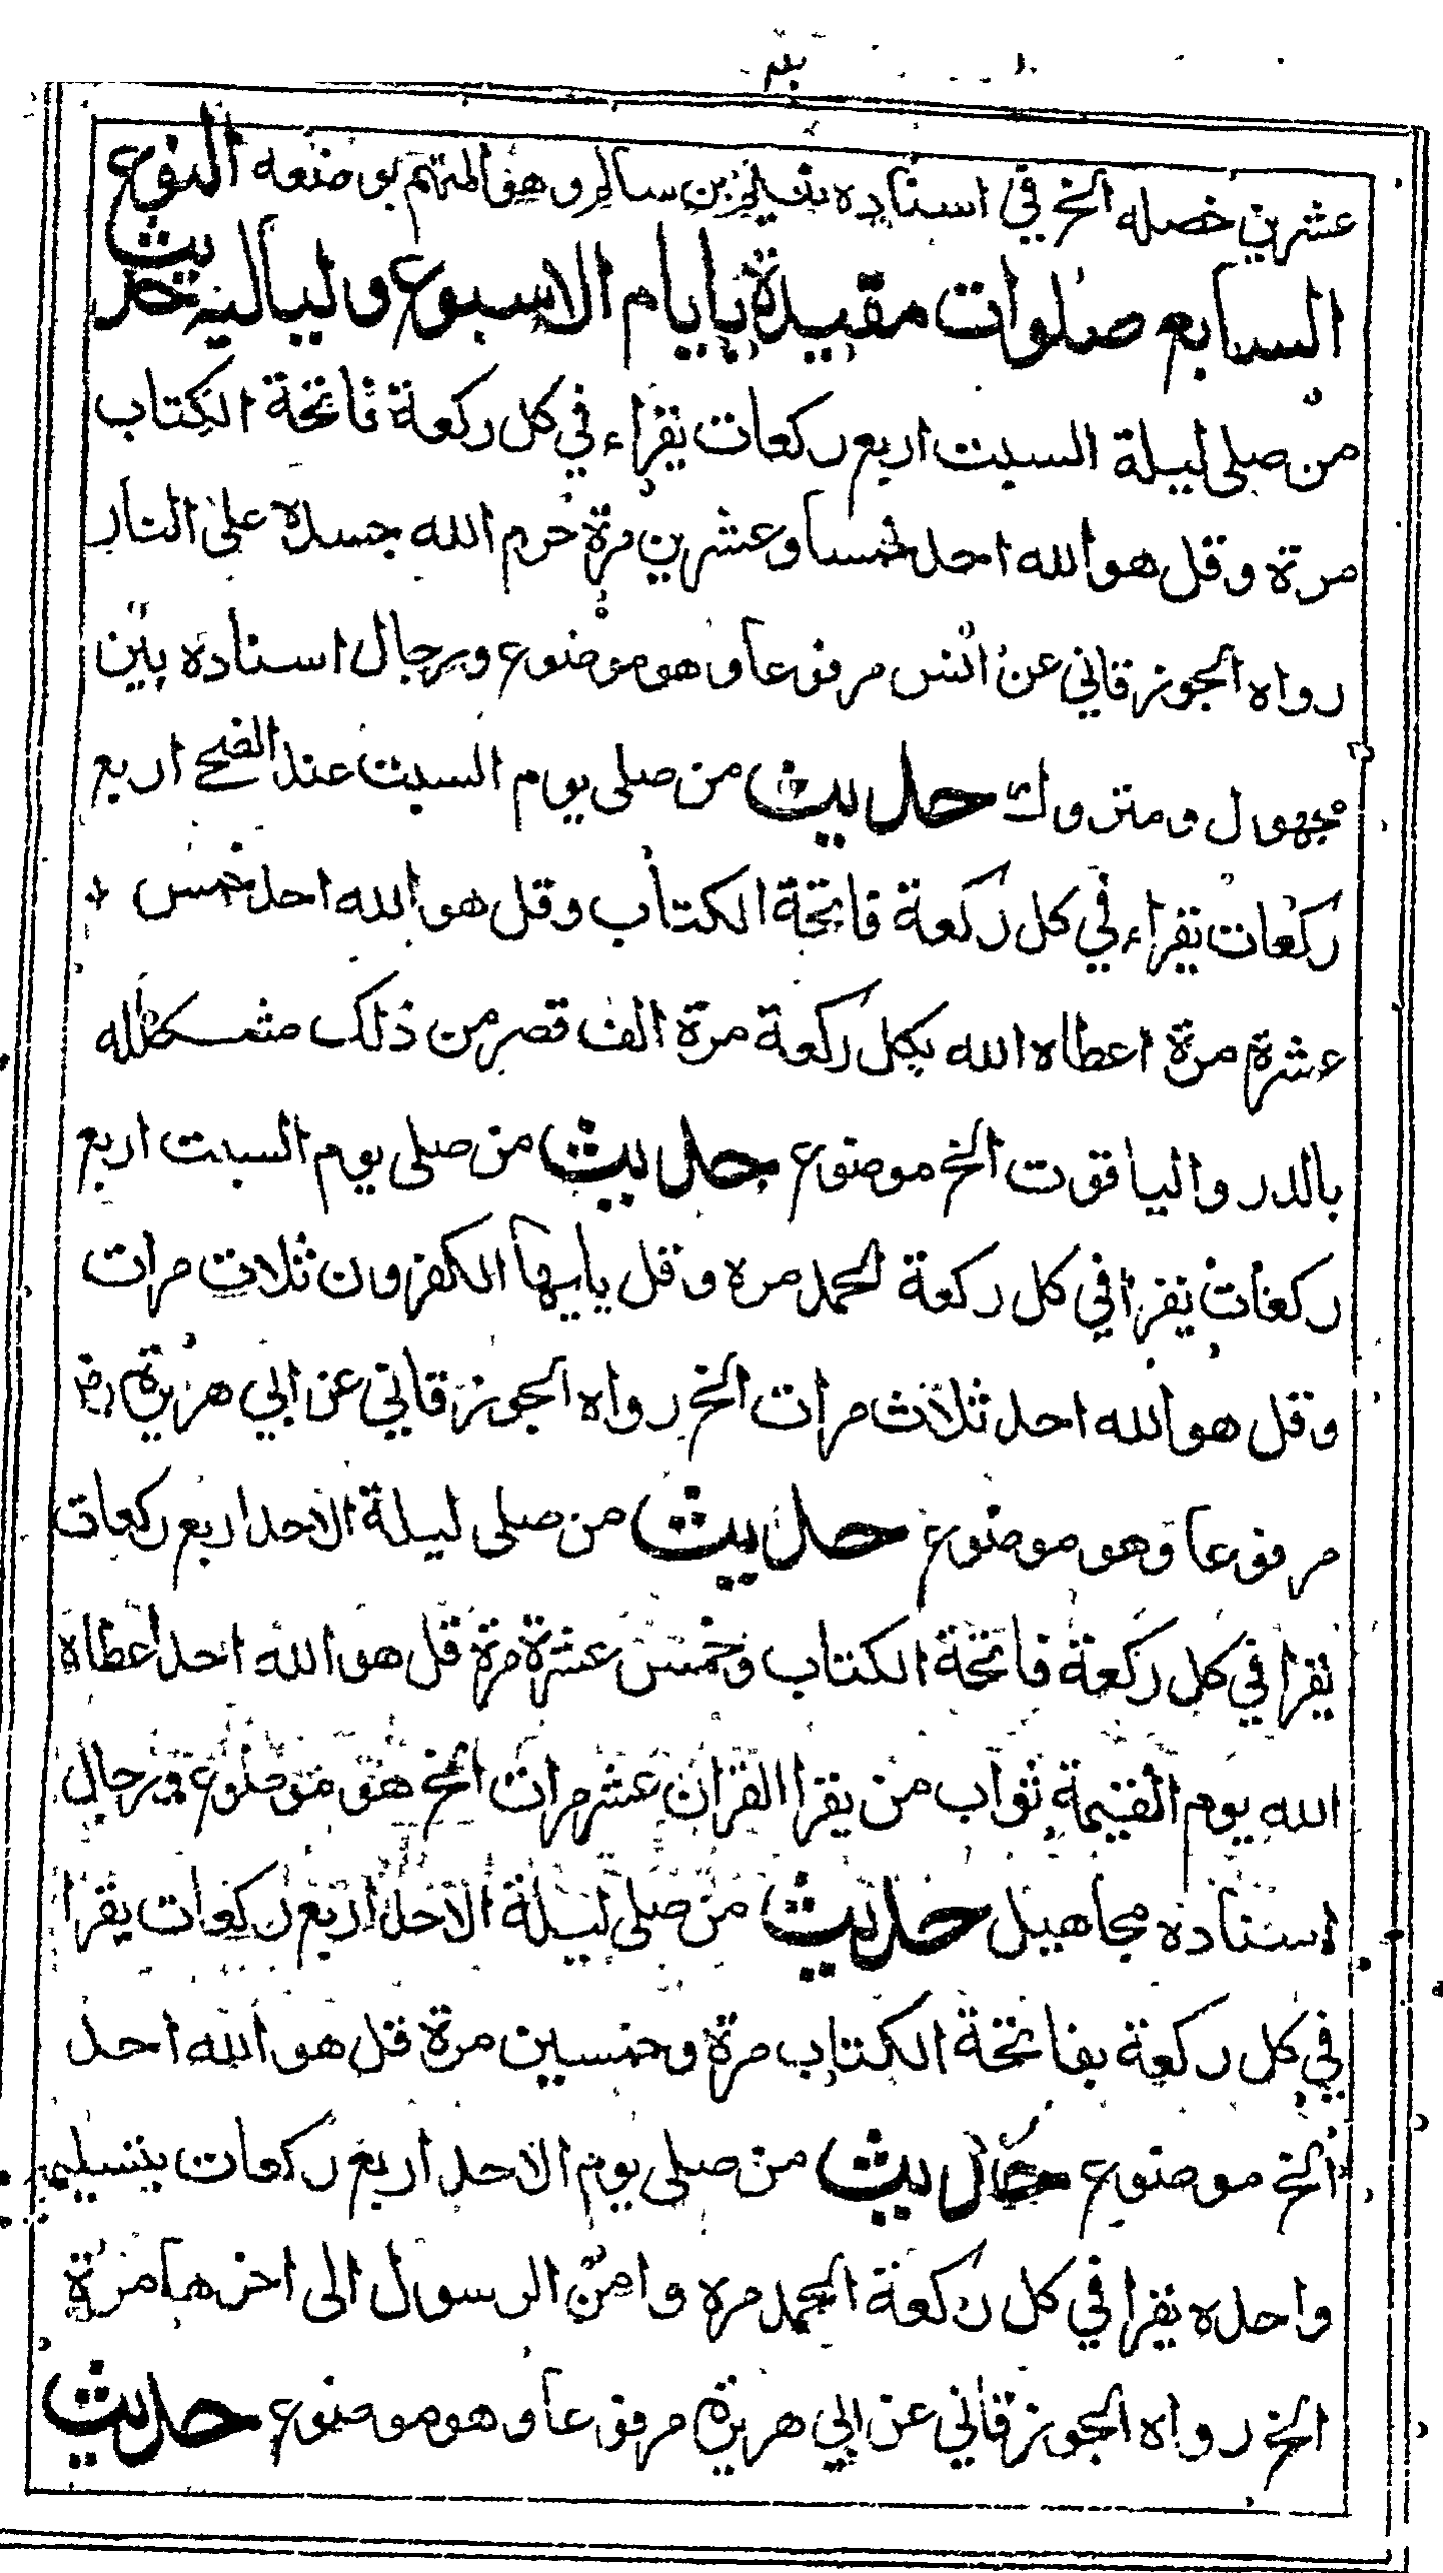 عشرين خصله الخ في اسناده بن سالم وهو المتهم بوضعه النوع
السابع صلوات مقيدة بايام الاسبوع ولياليه حديث
من صلى ليلة السبت اربع ركعات يقراء في كل ركعة فاتحة الكتاب
مرة وقل هو الله احد خمسا وعشرين مرة حرم الله جسده على النار
رواه الجوزقاني عن انس مرفوعا وهو موضوع ورجال اسناده بين
مجهول ومتروك حديث من صلى يوم السبت عند الضحى اربع
ركعات يقراء في كل ركعة فاتحة الكتاب وقل هو الله احد خمس
عشرة مرة اعطاه الله بكل ركعة مرة الف قصر من ذلك
بالدر والياقوت الخ موضوع حديث من صلى يوم السبت اربع
ركعات يقرا في كل ركعة الحمد مره وقل يايها الكفرون ثلاث مرات
وقل هو الله احد ثلاث مرات الخ رواه الجوزقاني عن ابي هريرة رض
مرفوعا وهو موضوع حديث من صلى ليلة الاحد اربع ركعات
يقرا في كل ركعة فاتحة الكتاب وخمس عشرة مرة قل هو الله احد اعطاه
الله يوم القيمة ثواب من يقرا القران عشر مرات الخ هو موضوع ورجال
اسناده مجاهيل حديث من صلى ليلة الاحد اربع ركعات يقرا
في كل ركعة بفاتحة الكتاب مرة وخمسين مرة قل هو الله احد
الخ موضوع حديث من صلى يوم الاحد اربع ركعات بتسليمة
واحده يقرا في كل ركعة الحمد مره وامن الرسول الى اخرها مرة
الخ رواه الجوزقاني عن ابي هريرة مرفوعا وهو موضوع حديث